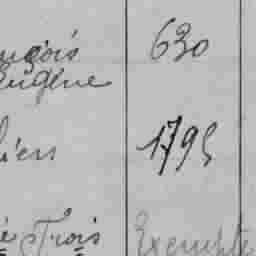 ançois 630
Eugène
liers 1795
é Trois Exempte